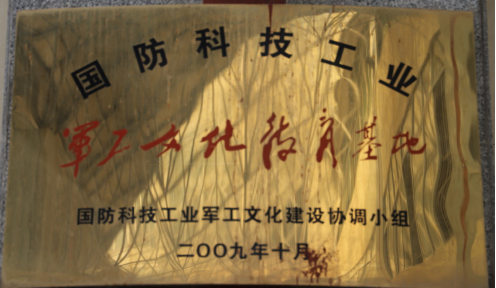 国防科技工业
军工文化教育基地
国防科技工业军工文化建设协调小组
二〇〇九年十月